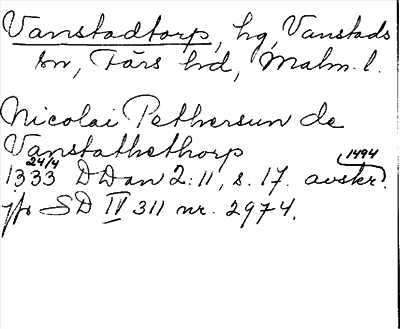 Vanstadtorp, hg, Vanstads
sn, Färs hd, Malm. l.
Nicolai Pethersun de
Vanstathethorp
24/4 1494
1333 DDan 2:11, s. 17. avskr.
jfr SD IV 311 nr. 2974.